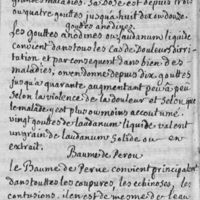 grandes maladies. La Dose est depuis trois
ou quatre gouttes jusqua huit dix ou douze
gouttes anodines.
les gouttes anodines ou laudanum liquide
convient dans tout les cas de Douleur dirri
tation et par consequent dans bien des
maladies, on en donne depuis dix gouttes
jusqu'a quarante augmentant peu a peu
selon la violence de la douleur et selon que
le malade y est plus ou moins accoutumé
vingt gouttes de laudanum liquide valent
un grain de laudanum solide ou en
extrait.
Baume de Perou
le Baume de Peruë convient principalem
dans touttes les coupures, les echinoses, les
contusions. il en est de mesme de l'eau